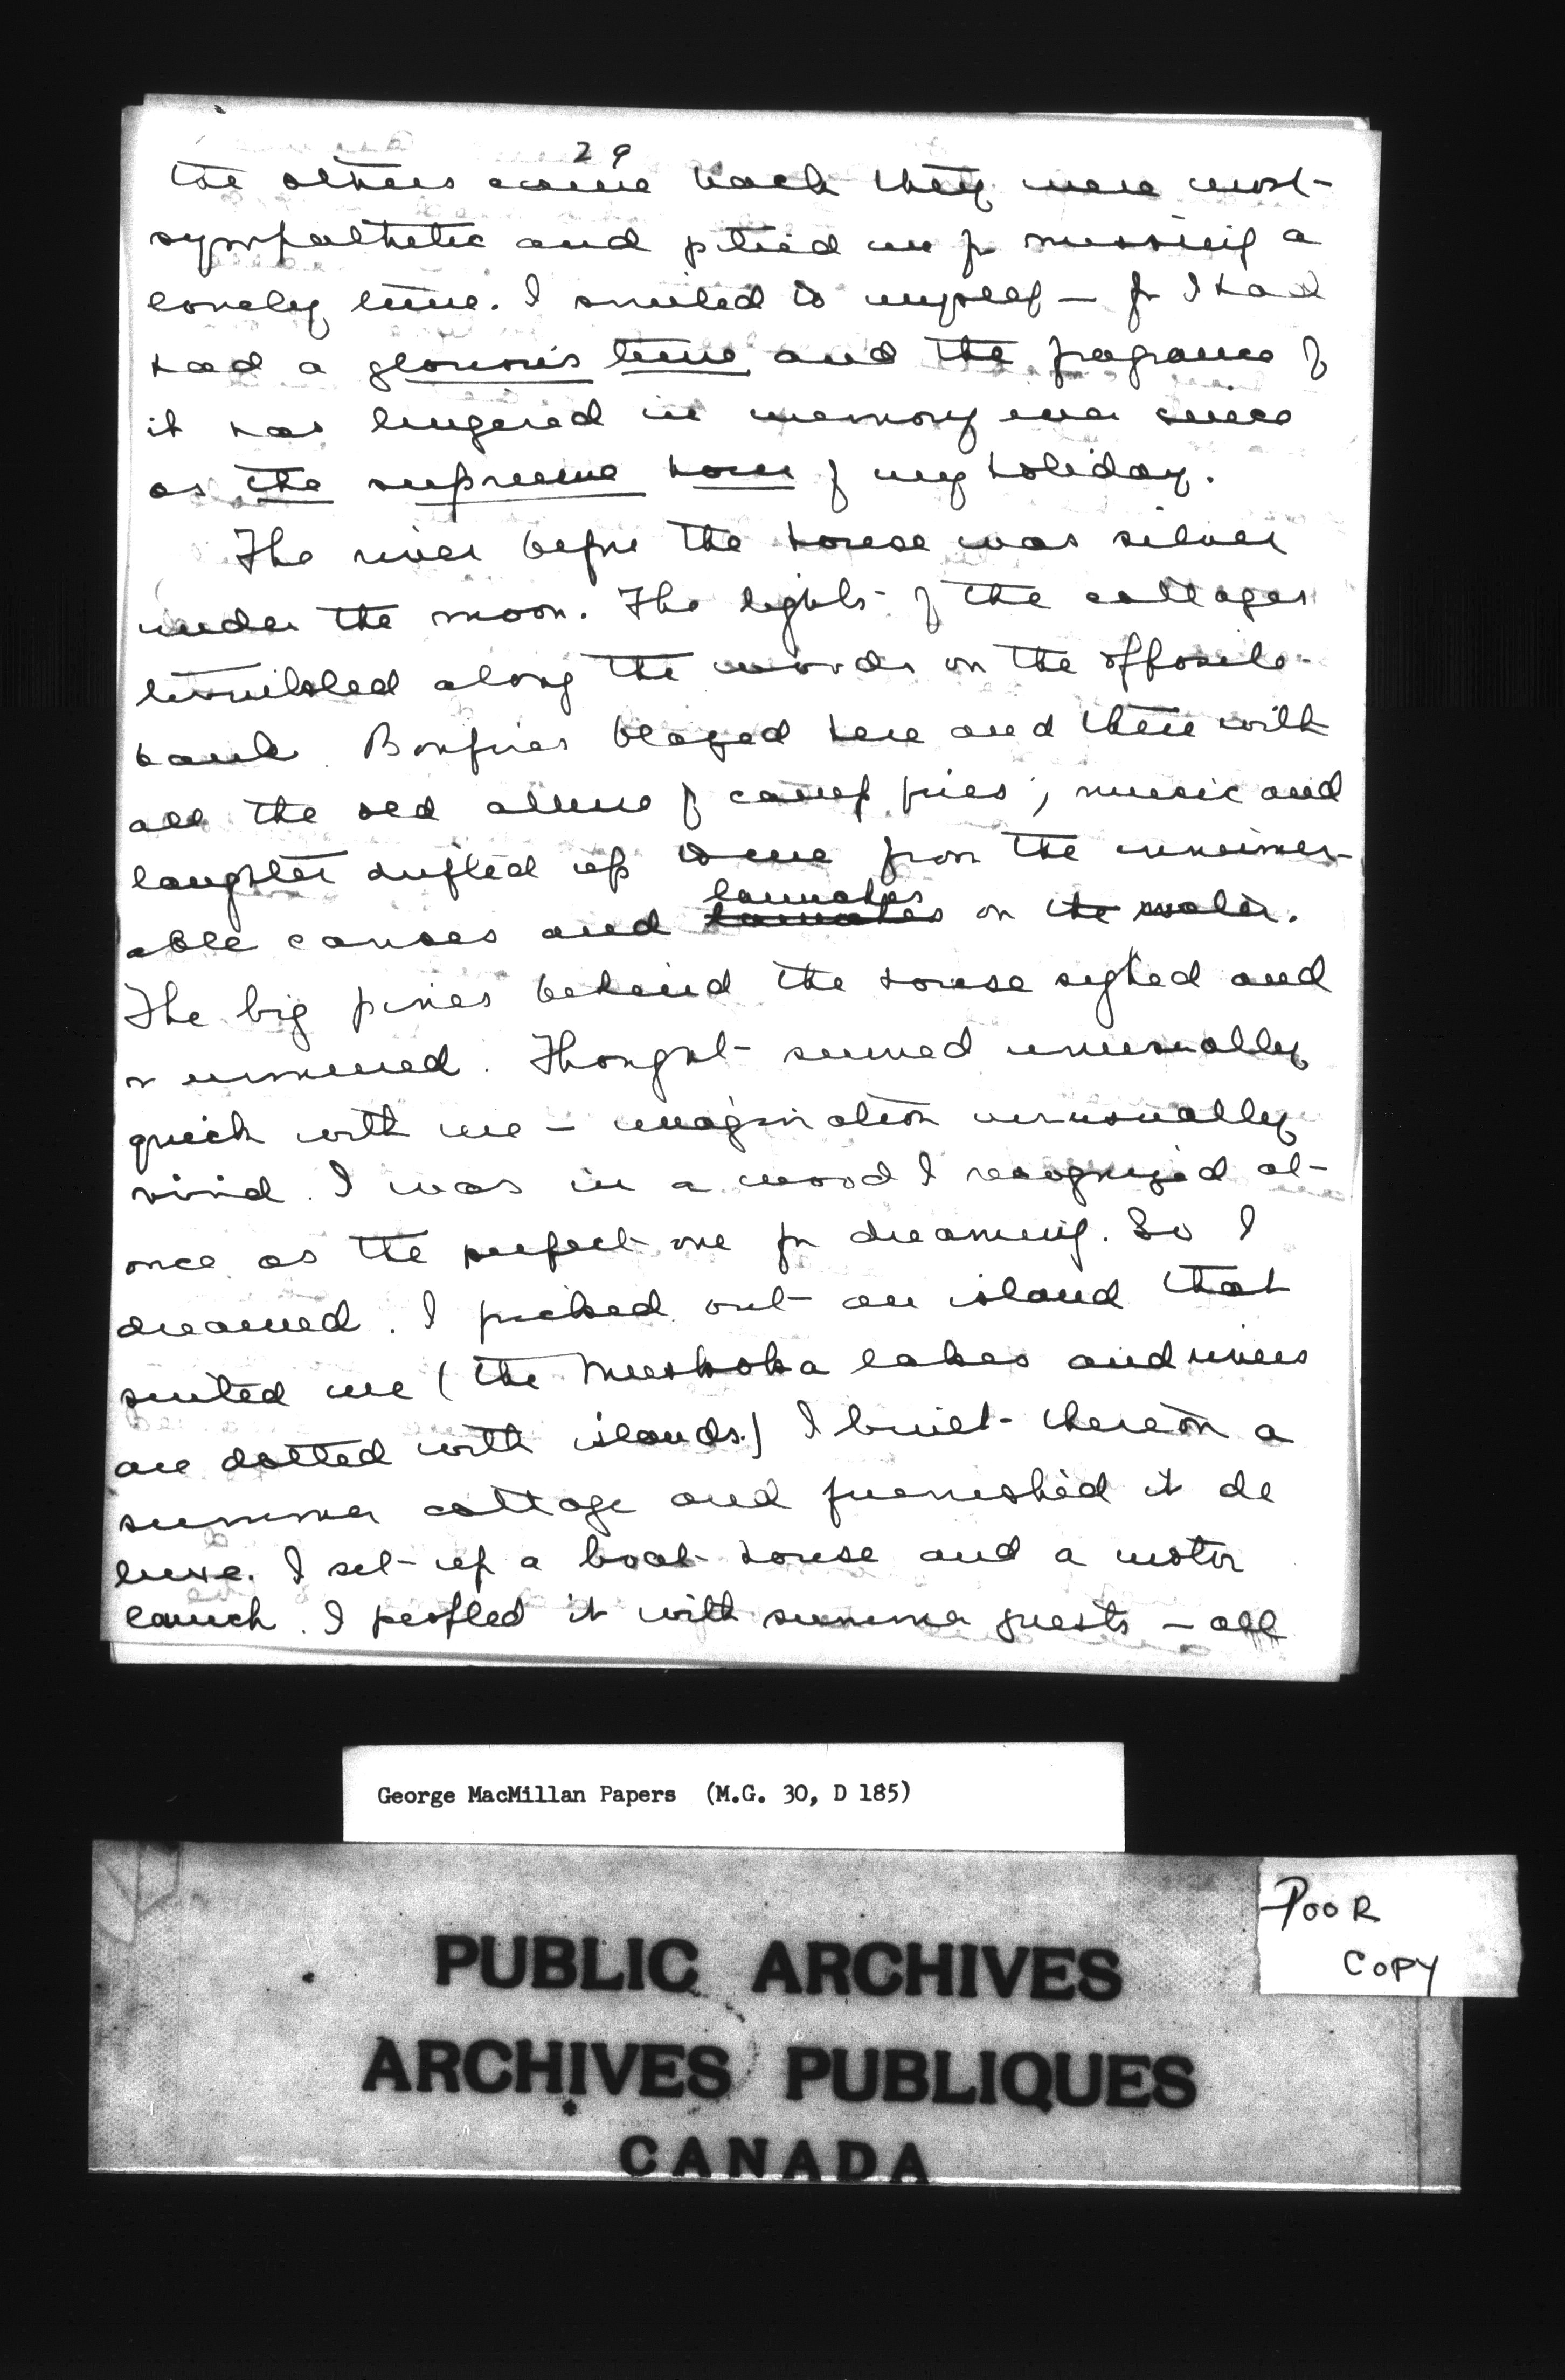 29
the others came back they were most
sympathetic and pitied me for missing a
lovely time. I smiled to myself – for I had
had a glorious time and the fragrance of
it has lingered in memory ever since
as the supreme hour of my holiday.
The river before the house was silver
under the moon. The lights of the cottages
twinkled along the woods on the opposite
bank. Bonfires blazed here and there with
all the old allure of camp fires; music and
laughter drifted up to me from the innumer-
launches
able canoes and launches on the water.
The big pines behind the house sighed and
murmured. Thought seemed unusually
quick with me – imagination unusually
vivid. I was in a mood I recognized at
once as the perfect one for dreaming. So I
dreamed. I picked out an island that
suited me (the Muskoka lakes and rivers
are dotted with islands.) I built thereon a
summer cottage and furnished it de
luxe. I set up a boat house and a motor
launch. I peopled it with summer guests – all
George MacMillan Papers (M.G. 30, D 185)
POOR
COPY
PUBLIC ARCHIVES
ARCHIVES PUBLIQUES
CANADA